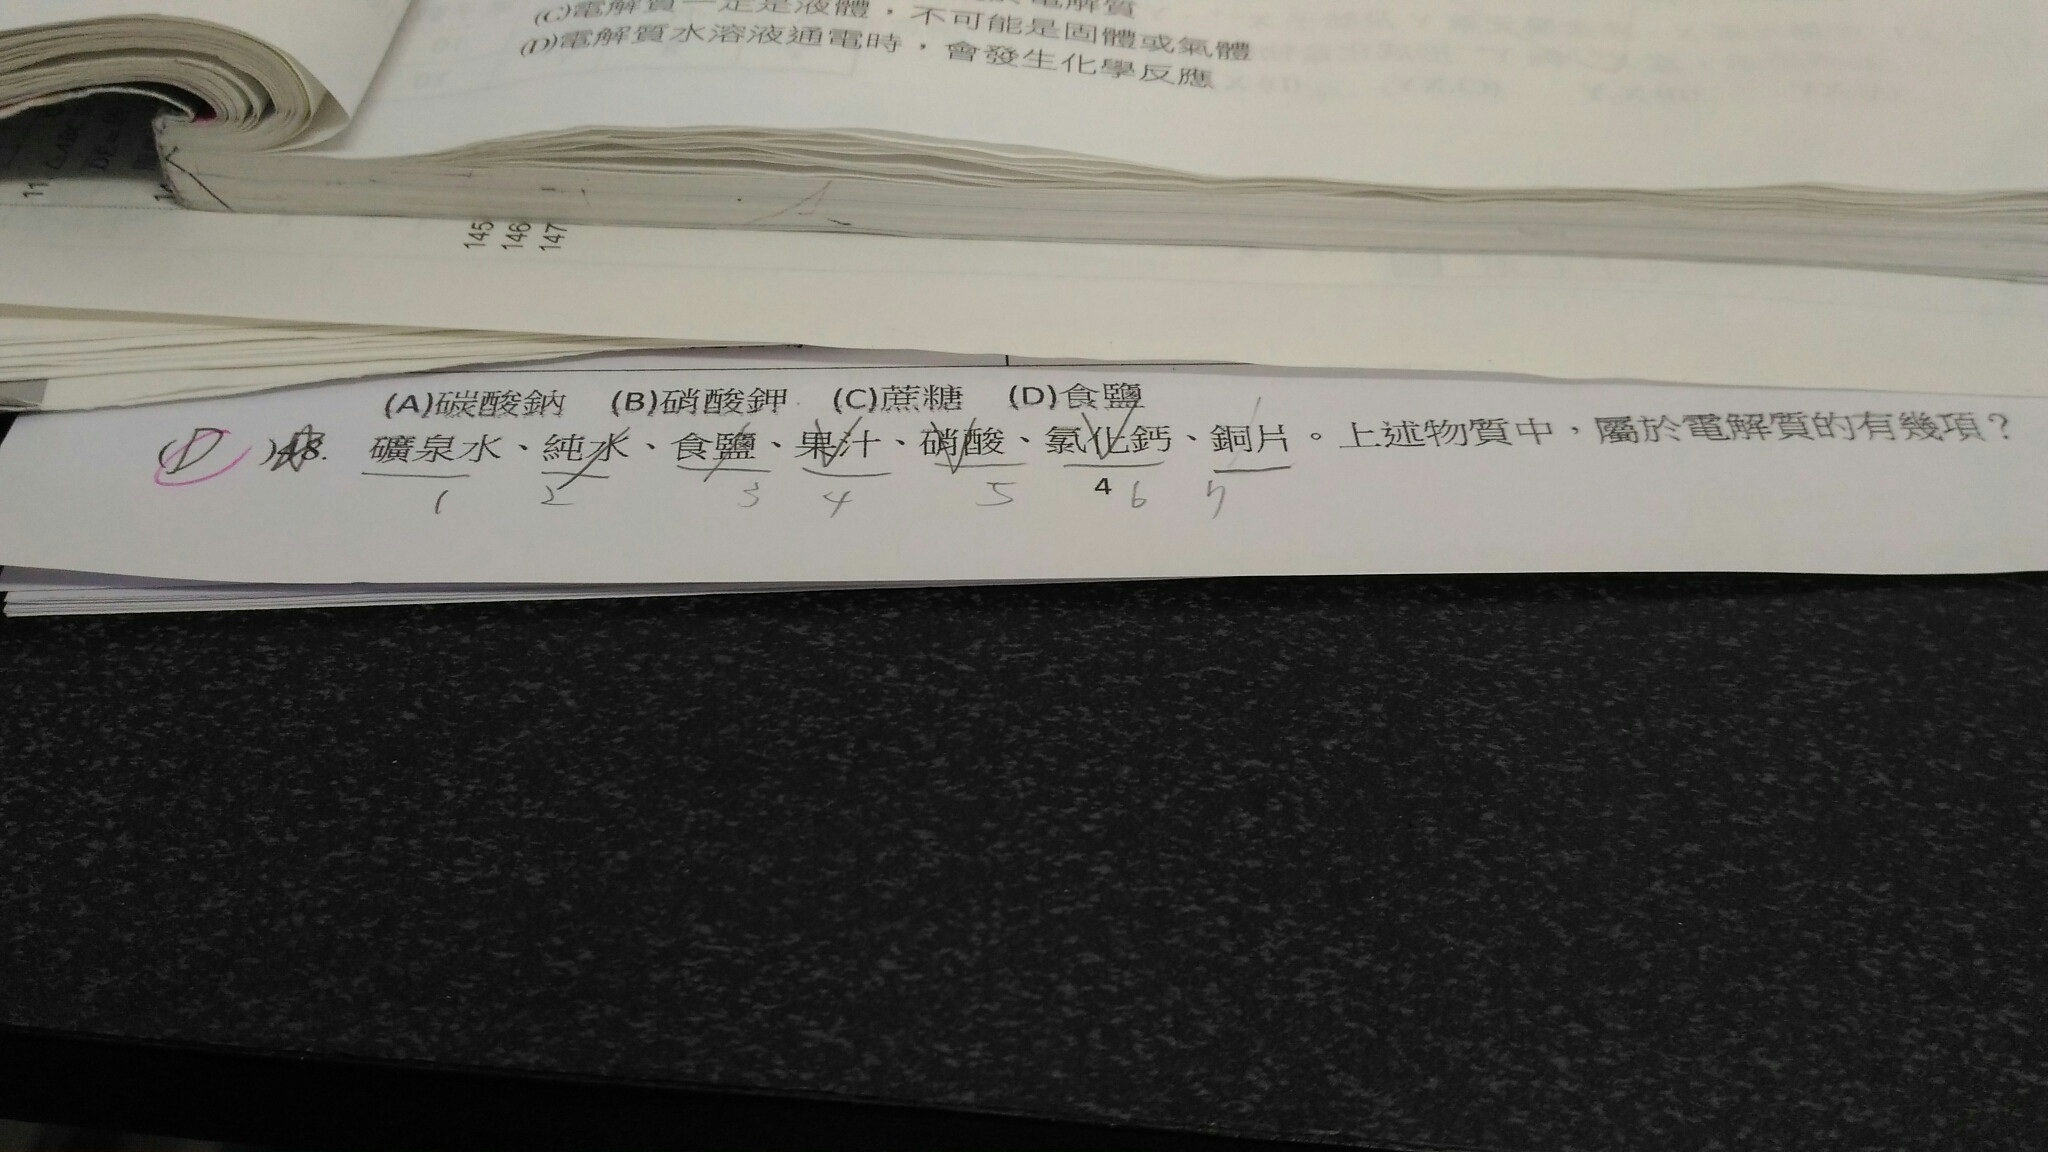 電解質
(C)電解質一定是液體，不可能是固體或氣體
(D)電解質水溶液通電時，會發生化學反應
145
146
147
(A)碳酸鈉 (B)硝酸鉀 (C)蔗糖 (D)食鹽
(D) 48. 礦泉水、純水、食鹽、果汁、硝酸、氯化鈣、銅片。上述物質中，屬於電解質的有幾項？
1 2 3 4 5 6 7
4